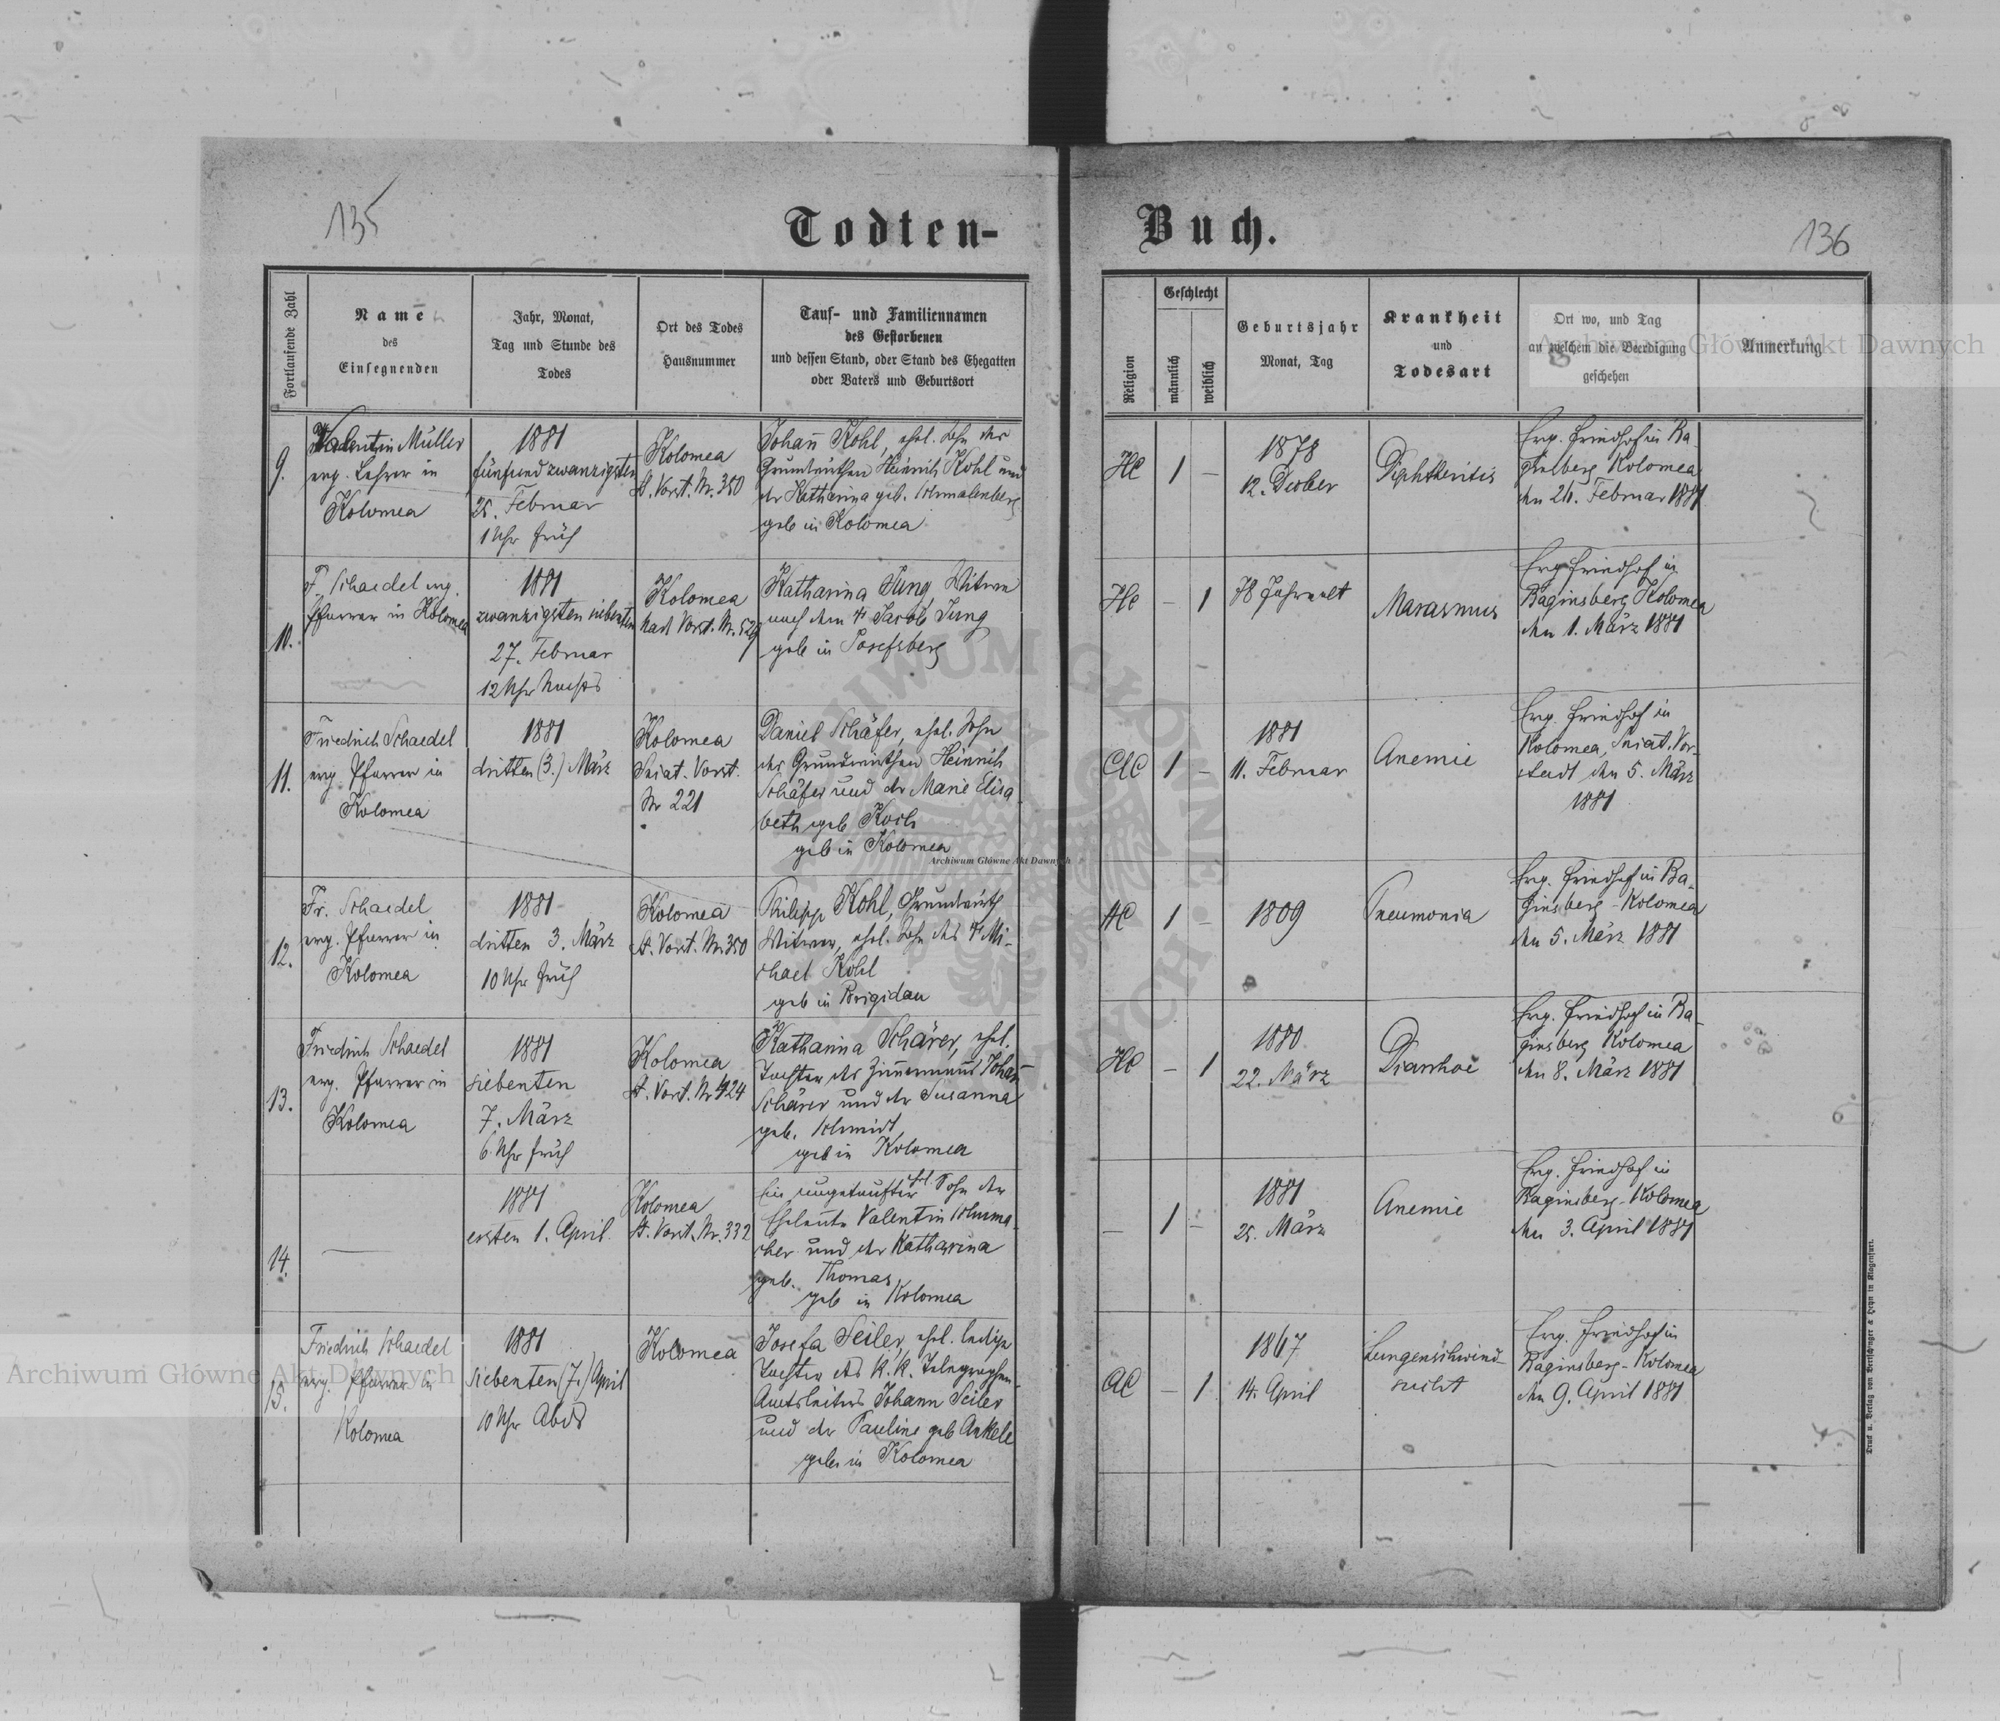 135
Todten-
Buch.
136
Fortlaufende Zahl
Name
des
Einsegnenden
Jahr, Monat,
Tag und Stunde des
Todes
Ort des Todes
Hausnummer
Tauf- und Familiennamen
des Gestorbenen
und dessen Stand, oder Stand des Ehegatten
oder Vaters und Geburtsort
Religion
Geschlecht
männlich
weiblich
Geburtsjahr
Monat, Tag
Krankheit
und
Todesart
Ort wo, und Tag
an welchem die Beerdigung
geschehen
Anmerkung
9.
Valentin Müller
evg. Lehrer in
Kolomea
1881
fünfundzwanzigsten
25. Februar
1 Uhr früh
Kolomea
St. Vorst. Nr. 350
Johan̄ Kohl, ehel. Sohn des
Grundwirthen Heinrich Kohl und
der Katharina geb. Schmalenberg
geb in Kolomea
HC
1
–
1878
12. Dcober
Diphtheritis
Evg. Friedhof in Ba-
ginsberg Kolomea
den 26. Februar 1881
10.
F. Schaedel evg.
Pfarrer in Kolomea
1881
zwanzigsten siebenten
27. Februar
12 Uhr Nachts
Kolomea
Nad. Vorst. Nr. 529
Katharina Jung, Witwe
nach dem † Jacob Jung
geb in Josefsberg
HC
–
1
78 Jahre alt
Marasmus
Evg. Friedhof in
Baginsberg Kolomea
den 1. März 1881
11.
Friedrich Schaedel
evg. Pfarrer in
Kolomea
1881
dritten (3.) März
Kolomea
Sniat. Vorst.
Nr 221
Daniel Schäfer, ehel. Sohn
des Grundwirthen Heinrich
Schäfer und der Marie Elisa-
beth geb Koch
geb in Kolomea
1
–
1881
11. Februar
Anemie
Evg. Friedhof in
Kolomea, Sniat. Vor-
stadt den 5. März
1881
12.
Fr. Schaedel
evg. Pfarrer in
Kolomea
1881
dritten 3. März
10 Uhr früh
Kolomea
St. Vorst. Nr. 350
Philipp Kohl, Grundwirth
Witwer, ehel. Sohn des † Mi-
chael Kohl
geb in Brigidau
HC
1
–
1809
Pneumonia
Evg. Friedhof in Ba-
ginsberg - Kolomea
den 5. März 1881
13.
Friedrich Schaedel
evg. Pfarrer in
Kolomea
1881
siebenten
7. März
6 Uhr früh
Kolomea
St. Vorst. Nr 424
Katharina Schärer, ehel.
Tochter des Zim̄ermanns Johan̄
Schärer und der Susanna
geb. Schmidt
geb in Kolomea
HC
–
1
1880
22. März
Diarrhoe
Evg. Friedhof in Ba-
ginsberg Kolomea
den 8. März 1881
14.
1881
ersten 1. April
Kolomea
St. Vorst. Nr. 332
Ein ungetaufter ehl. Sohn der
Eheleute Valentin Schuma-
cher und der Katharina
geb. Thomas
geb in Kolomea
–
1
–
1881
25. März
Anemie
Evg. Friedhof in
Baginsberg - Kolomea
den 3. April 1881
15.
Friedrich Schaedel
evg. Pfarrer in
Kolomea
1881
siebenten (7.) April
10 Uhr Abds
Kolomea
Josefa Seiler, ehel. ledige
Tochter des k. k. Telegraphen-
Amtsleiters Johann Seiler
und der Pauline geb Ankele
geb. in Kolomea
AC
–
1
1867
14. April
Lungenschwind-
sucht
Evg. Friedhof in
Baginsberg - Kolomea
den 9. April 1881
Druck u. Verlag von Bertschinger & Heyn in Klagenfurt.
Archiwum Główne Akt Dawnych
Archiwum Główne Akt Dawnych
Archiwum Główne Akt Dawnych